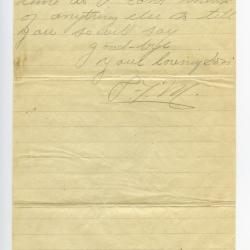 time as I can't think
of anything else to tell
you so will say
good-bye
Your loving Son